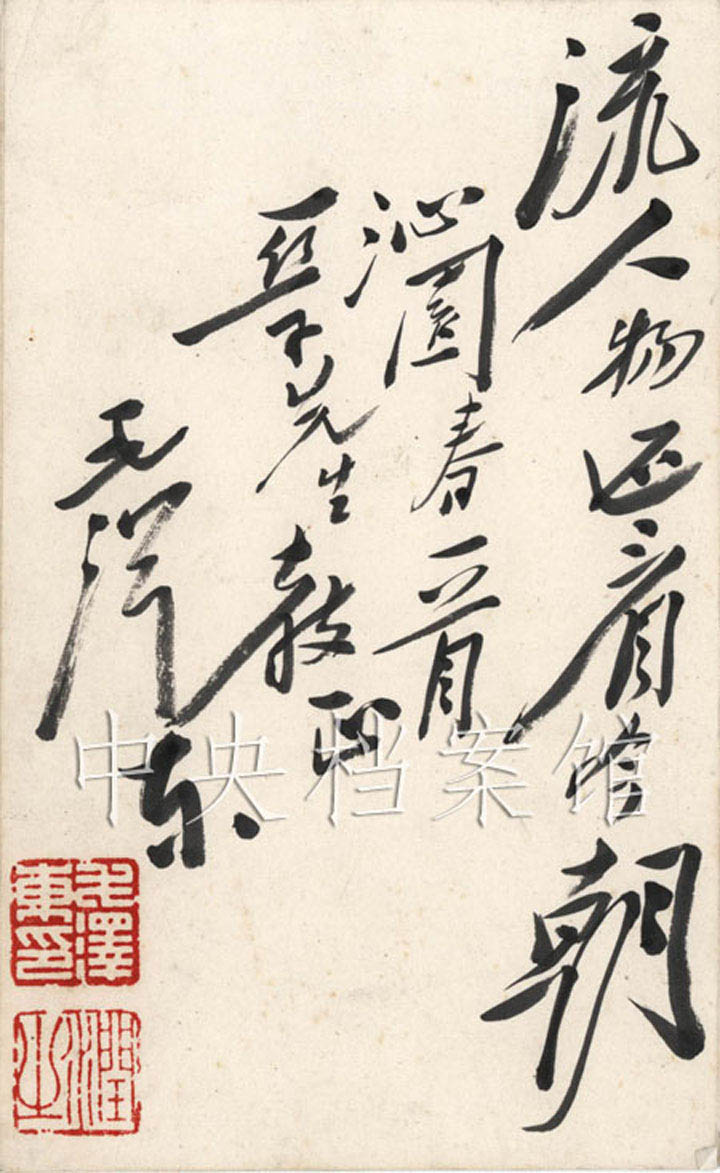 流人物还看今朝
沁園春一首
亞子先生教正
毛澤东
中央档案馆
毛澤東印
潤之